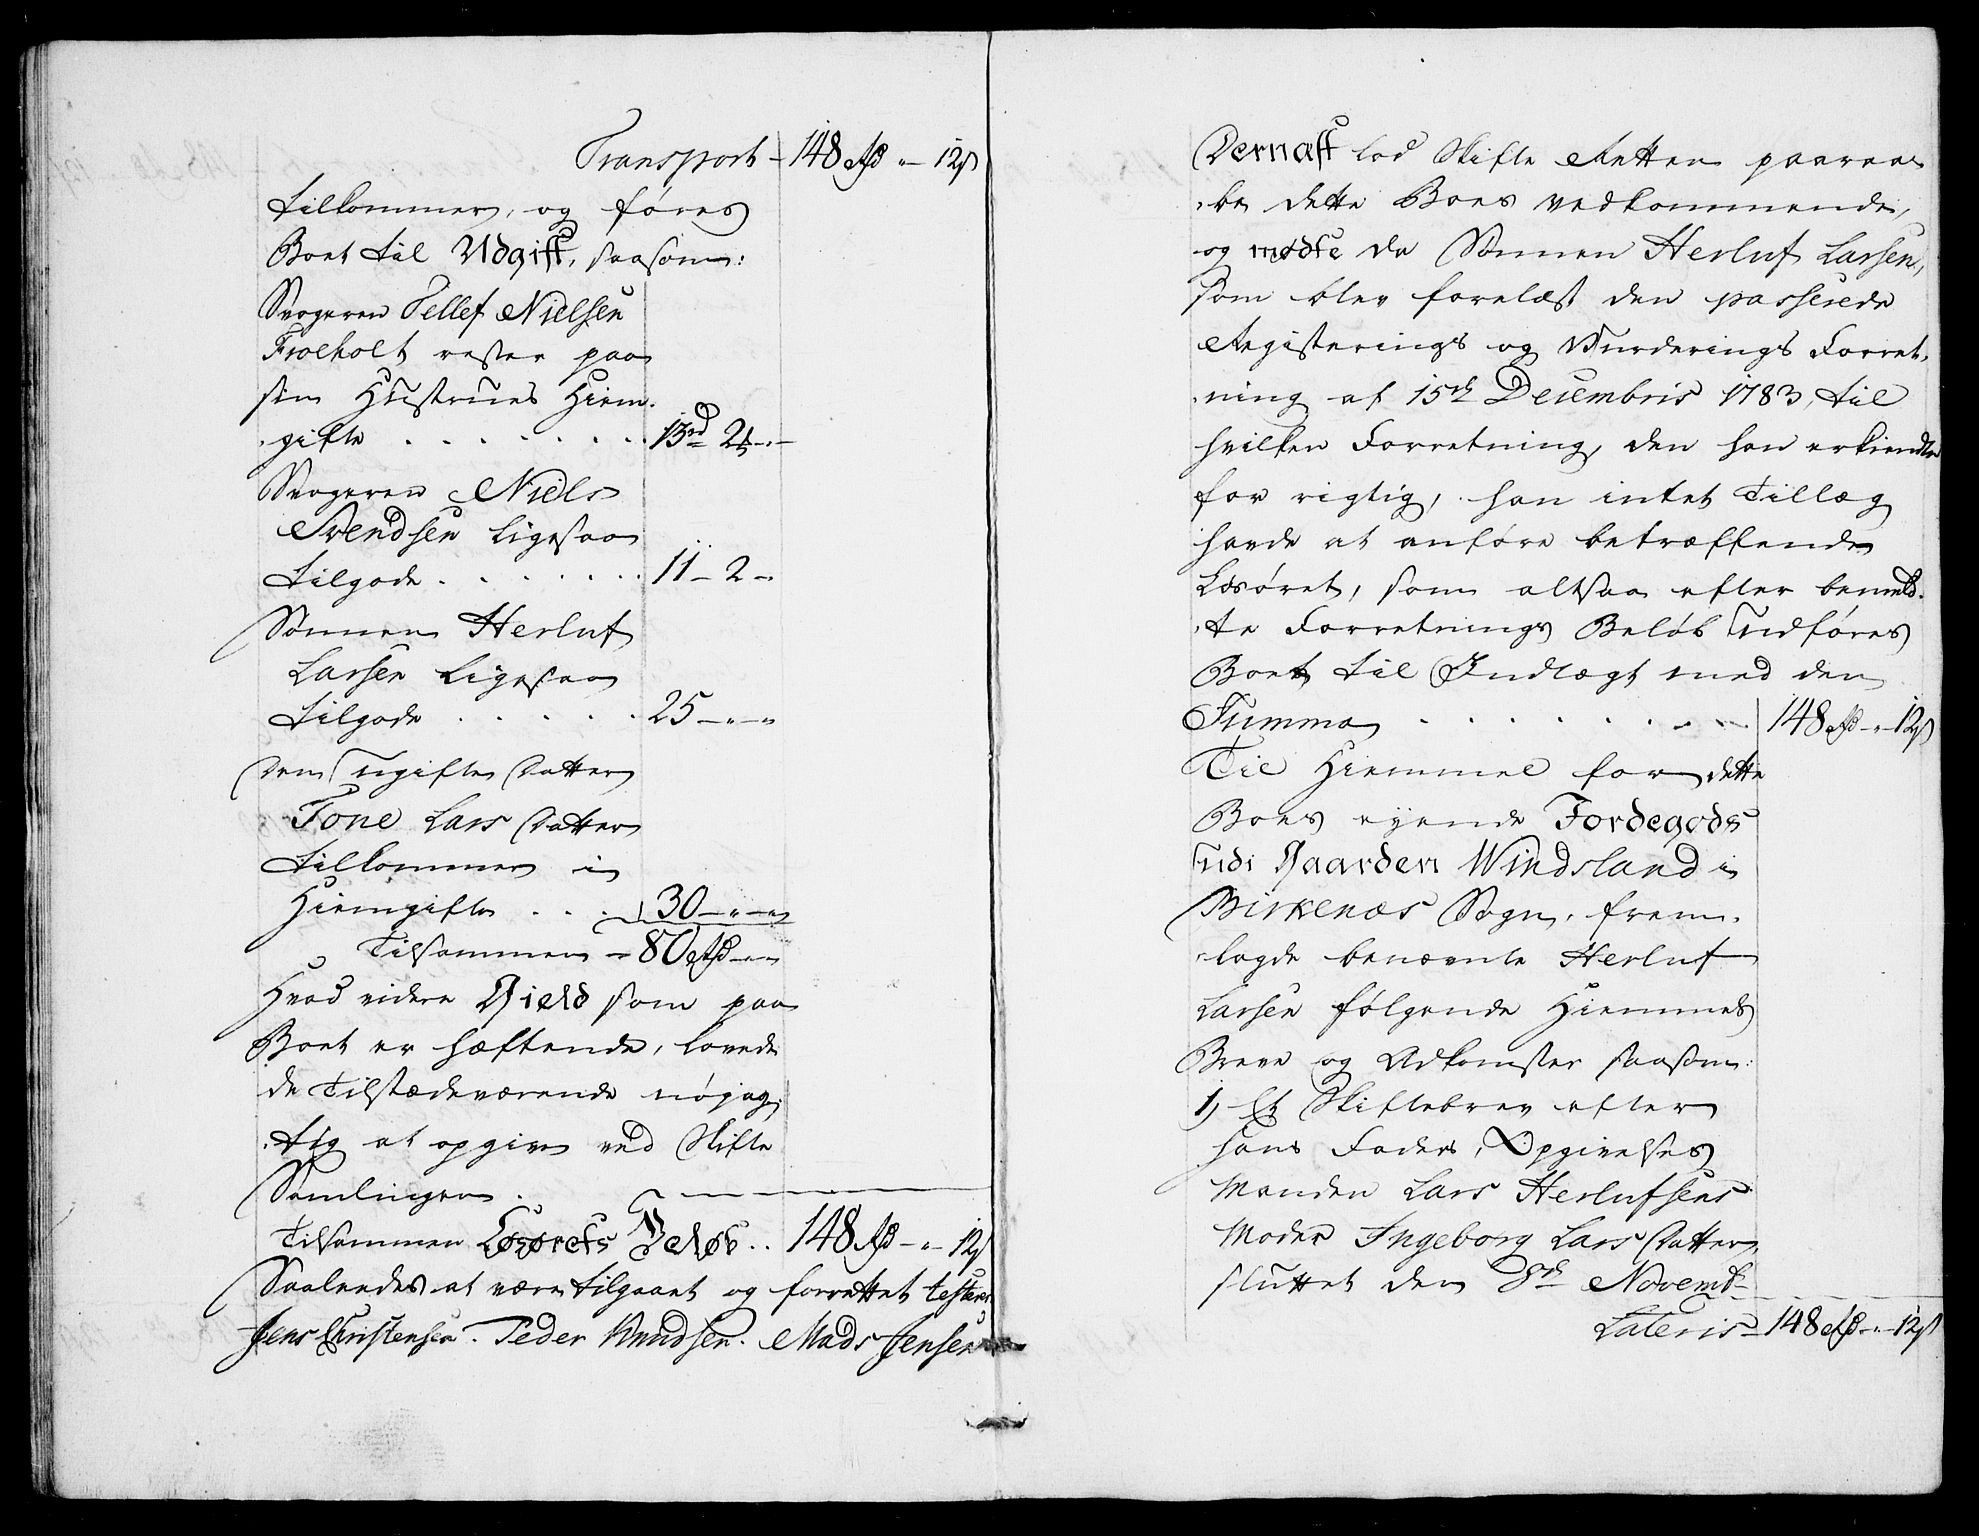 Transport - 148 Rd " 12 s
tilkommer, og føres
Boet til Udgift, saasom:
Svogeren Tellef Nielsen
Froeholt rester paa
sin Hustrues Hiem-
gifte . . . . . . . . . 13rd 2 -"-
Svogeren Niels
Svendsen ligesaa
tilgode . . . . . . . 11 - 2 -"
Sønnen Herluf
Larsen ligesaa
tilgode . . . . . . 25 -"-"
Den ugifte Datter
Tone Lars Datter
tilkommer i
Hiemgifte . . . 30 -"-"
Tilsammen - 80 Rd -"-
Hvad videre Gield som paa
Boet er hæftende, lovede
de Tilstædeværende nøyag-
tig at opgive ved Skifte
Samlingen.
Tilsammen Løsørets Beløb . . 148 Rd -"- 12 s
Saaledes at være tilgaaet og forrettet testerer
Jens Christensen. Peder Knudsen. Mads Jensen
Dernæst lod Skifte Retten paaraa-
be dette Boes vedkommende,
og mødte da Sønnen Herluf Larsen,
som blev forelæst den passerede
Registerings og Vurderings Forret-
ning af 15de Decembris 1783, til
hvilken Forretning, den han erkiendte
for rigtig, han intet Tillæg
havde at anføre betræffende
Løsøret, som altsaa efter bemeld-
te Forretnings Beløb udføres
Boet til Indtægt med den
Summa . . . . . . . . . 148 Rd -"- 12 s
Til Hiemmel for dette
Boes eyende Jordegods
udi Gaarden Windsland i
Birkenæs Sogn, frem-
lagde benævnte Herluf
Larsen følgende Hiemmels
Breve og Adkomster saasom:
1) Et Skiftebrev efter
hans Faders, Opgivelses
Manden Lars Herlufsens
Moder Ingeborg Lars Datter,
sluttet den 8de Novembr
Lateris - 148 Rd -"- 12 s